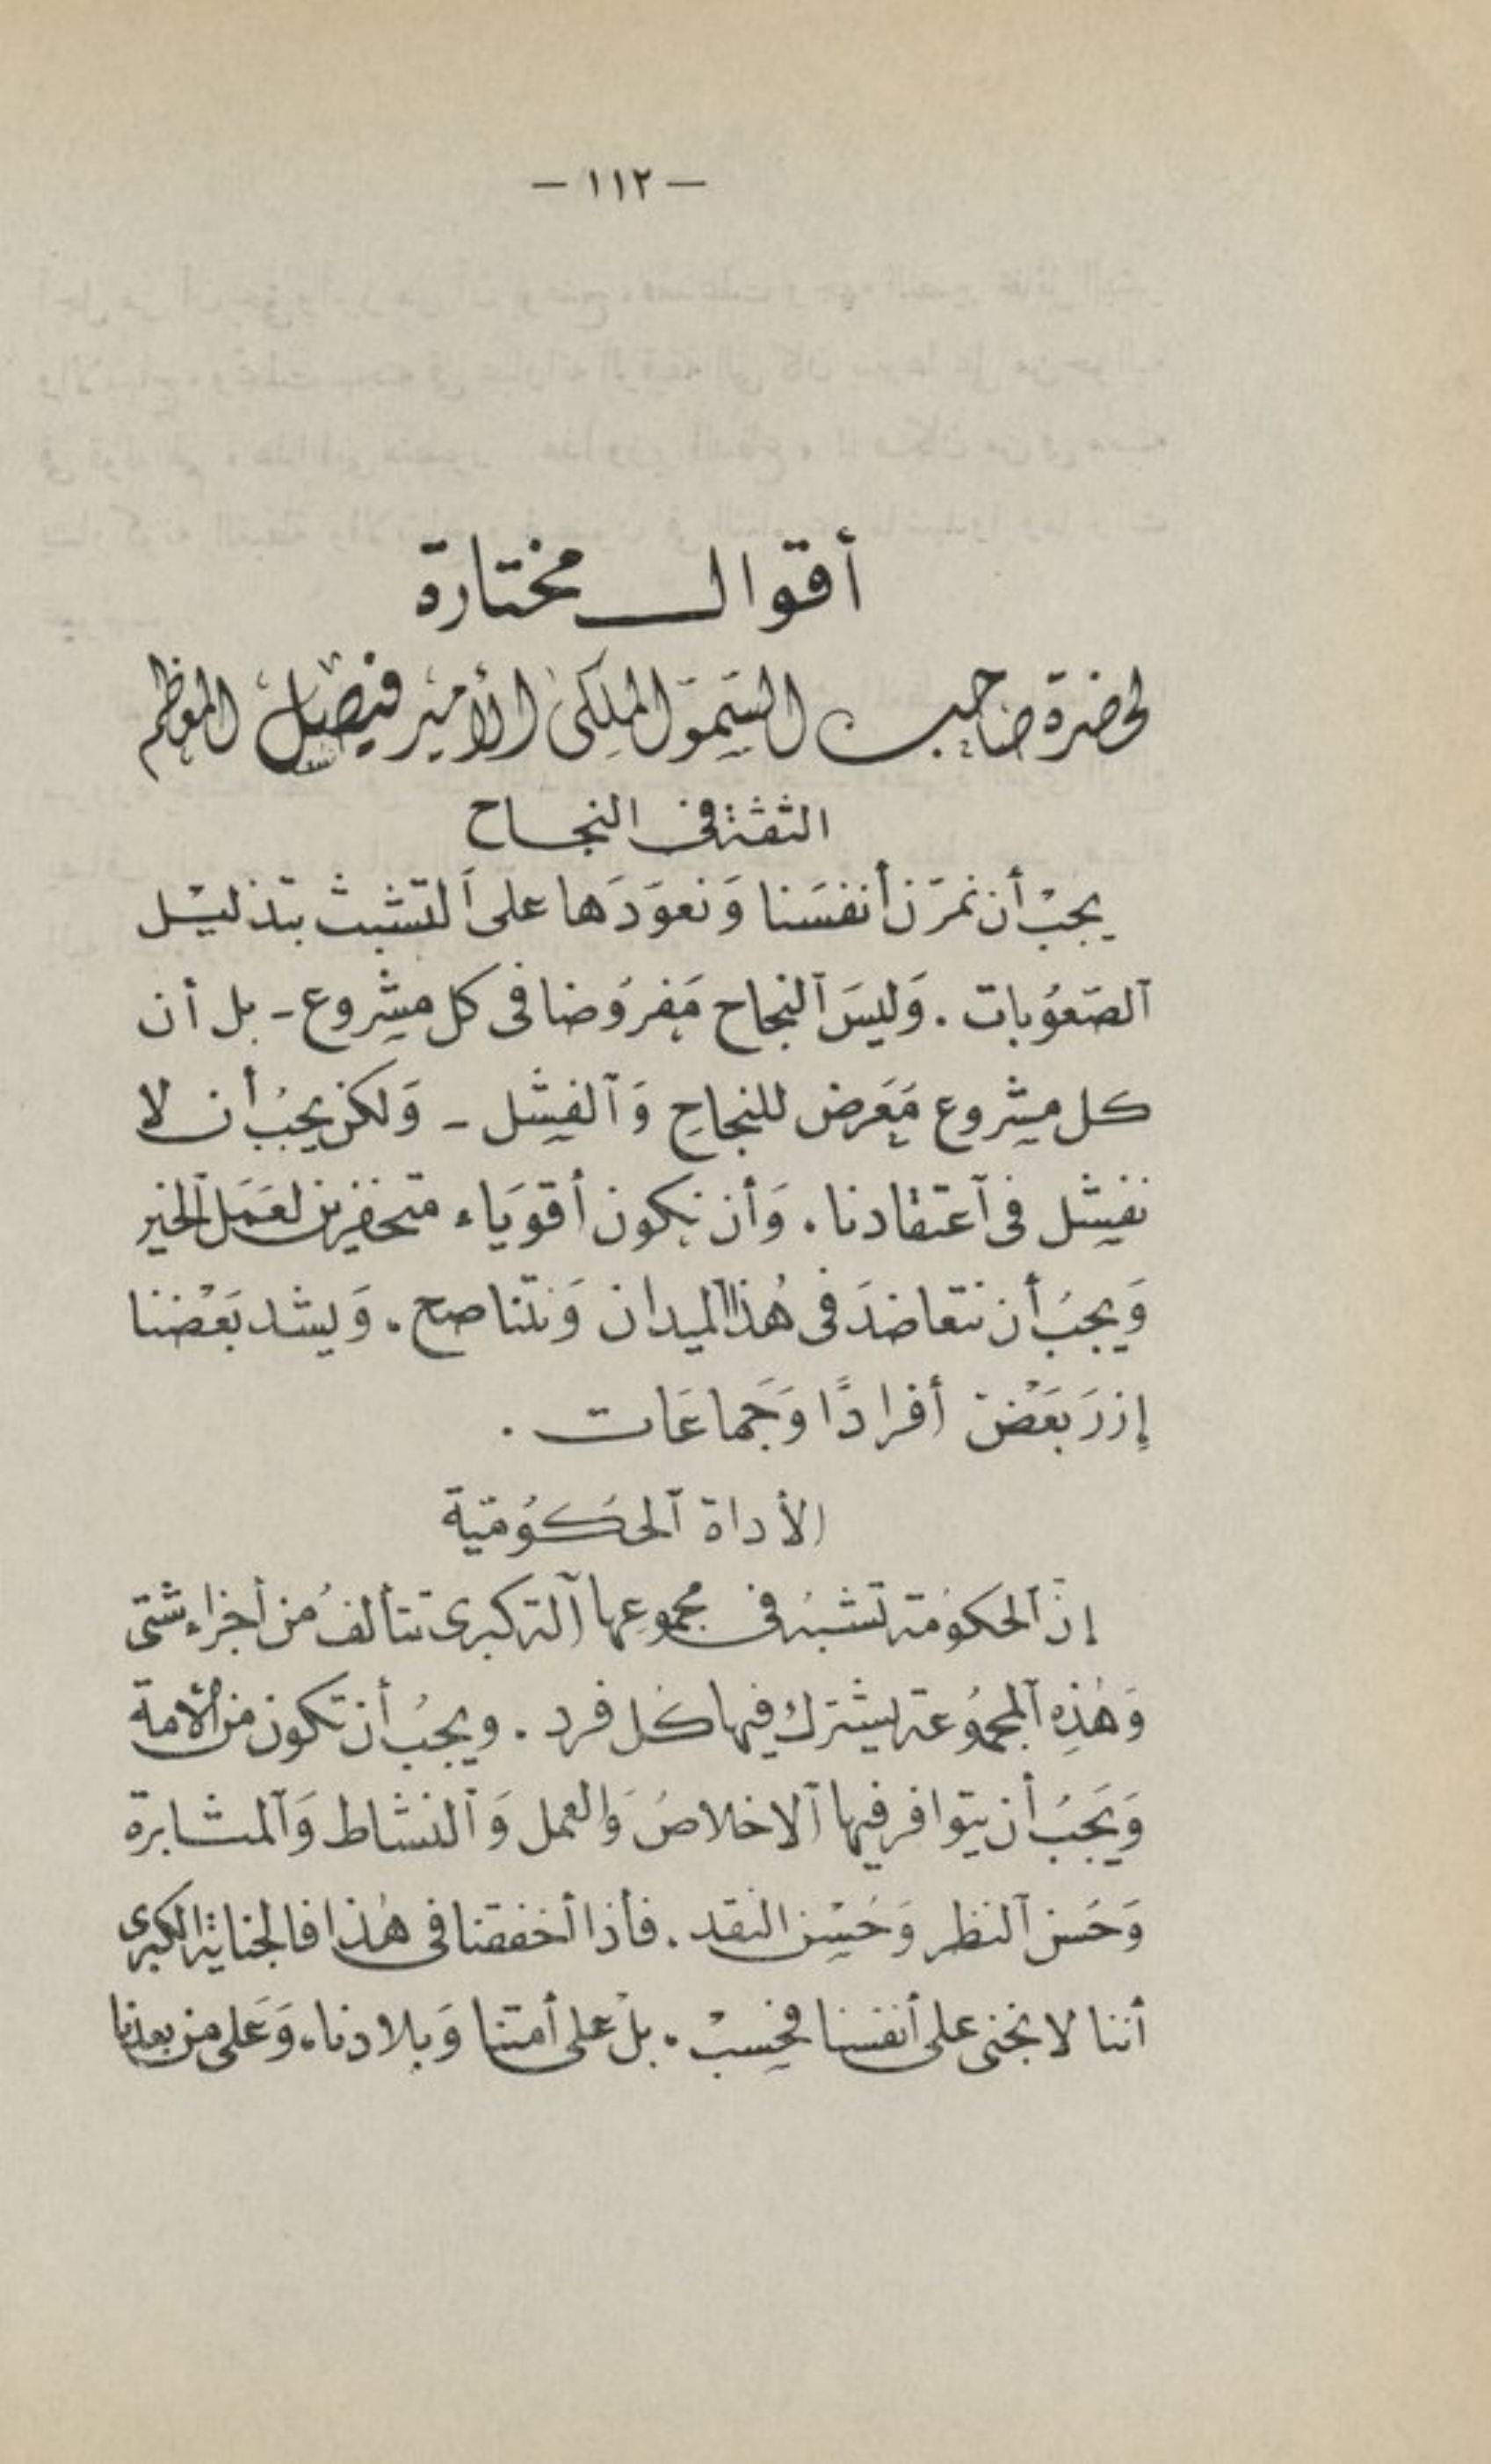 — ١١٢ —
أقوال مختارة
لحضرة صاحب السمو الملكى الأمير فيصل المعظم
الثقة فى النجاح
يجب أن نمرّن أنفسَنا وَنعوّدَها على ٱلتشبث بتذليل
ٱلصّعُوبات . وَليسَ ٱلنجاح مَفروُضا فى كل مشروع - بل أن
كل مشروع مَعَرض للنجاح وَٱلفشل - وَلكن يجبُ أن لا
نفشل فى ٱعتقادنا . وَأن نكون أقويَاء متحفزين لعَمَل ٱلخير
وَيجبُ أن نتعاضدَ فى هُذا ٱلميدان وَنتناصح . وَيشد بَعْضنا
إزرَ بَعَضْ أفرادًا وَجَماعَات .
الأداة ٱلحُكُومَية
إنّ ٱلحكوُمة تشبهُ فى مجموعِها آلة كبرى تتألفُ من أجزاء شتى
وَهٰذِه ٱلمجموُعة يشترك فيها كُل فرد . ويجبُ أن تكون من ٱلأمة
وَيَجبُ أن يتوافر فيها ٱلاخلاصُ وَٱلعمل وَٱلنشاط وَٱلمثابرة
وَحُسن ٱلنظر وَحُسْن النقد . فأذا أخفقنا فى هٰذا فالجناية الكبرى
أننا لا نجنى على أنفسنا فحسبْ . بلْ على أمتنا وَبلادنا . وَعَلى من بعدنا